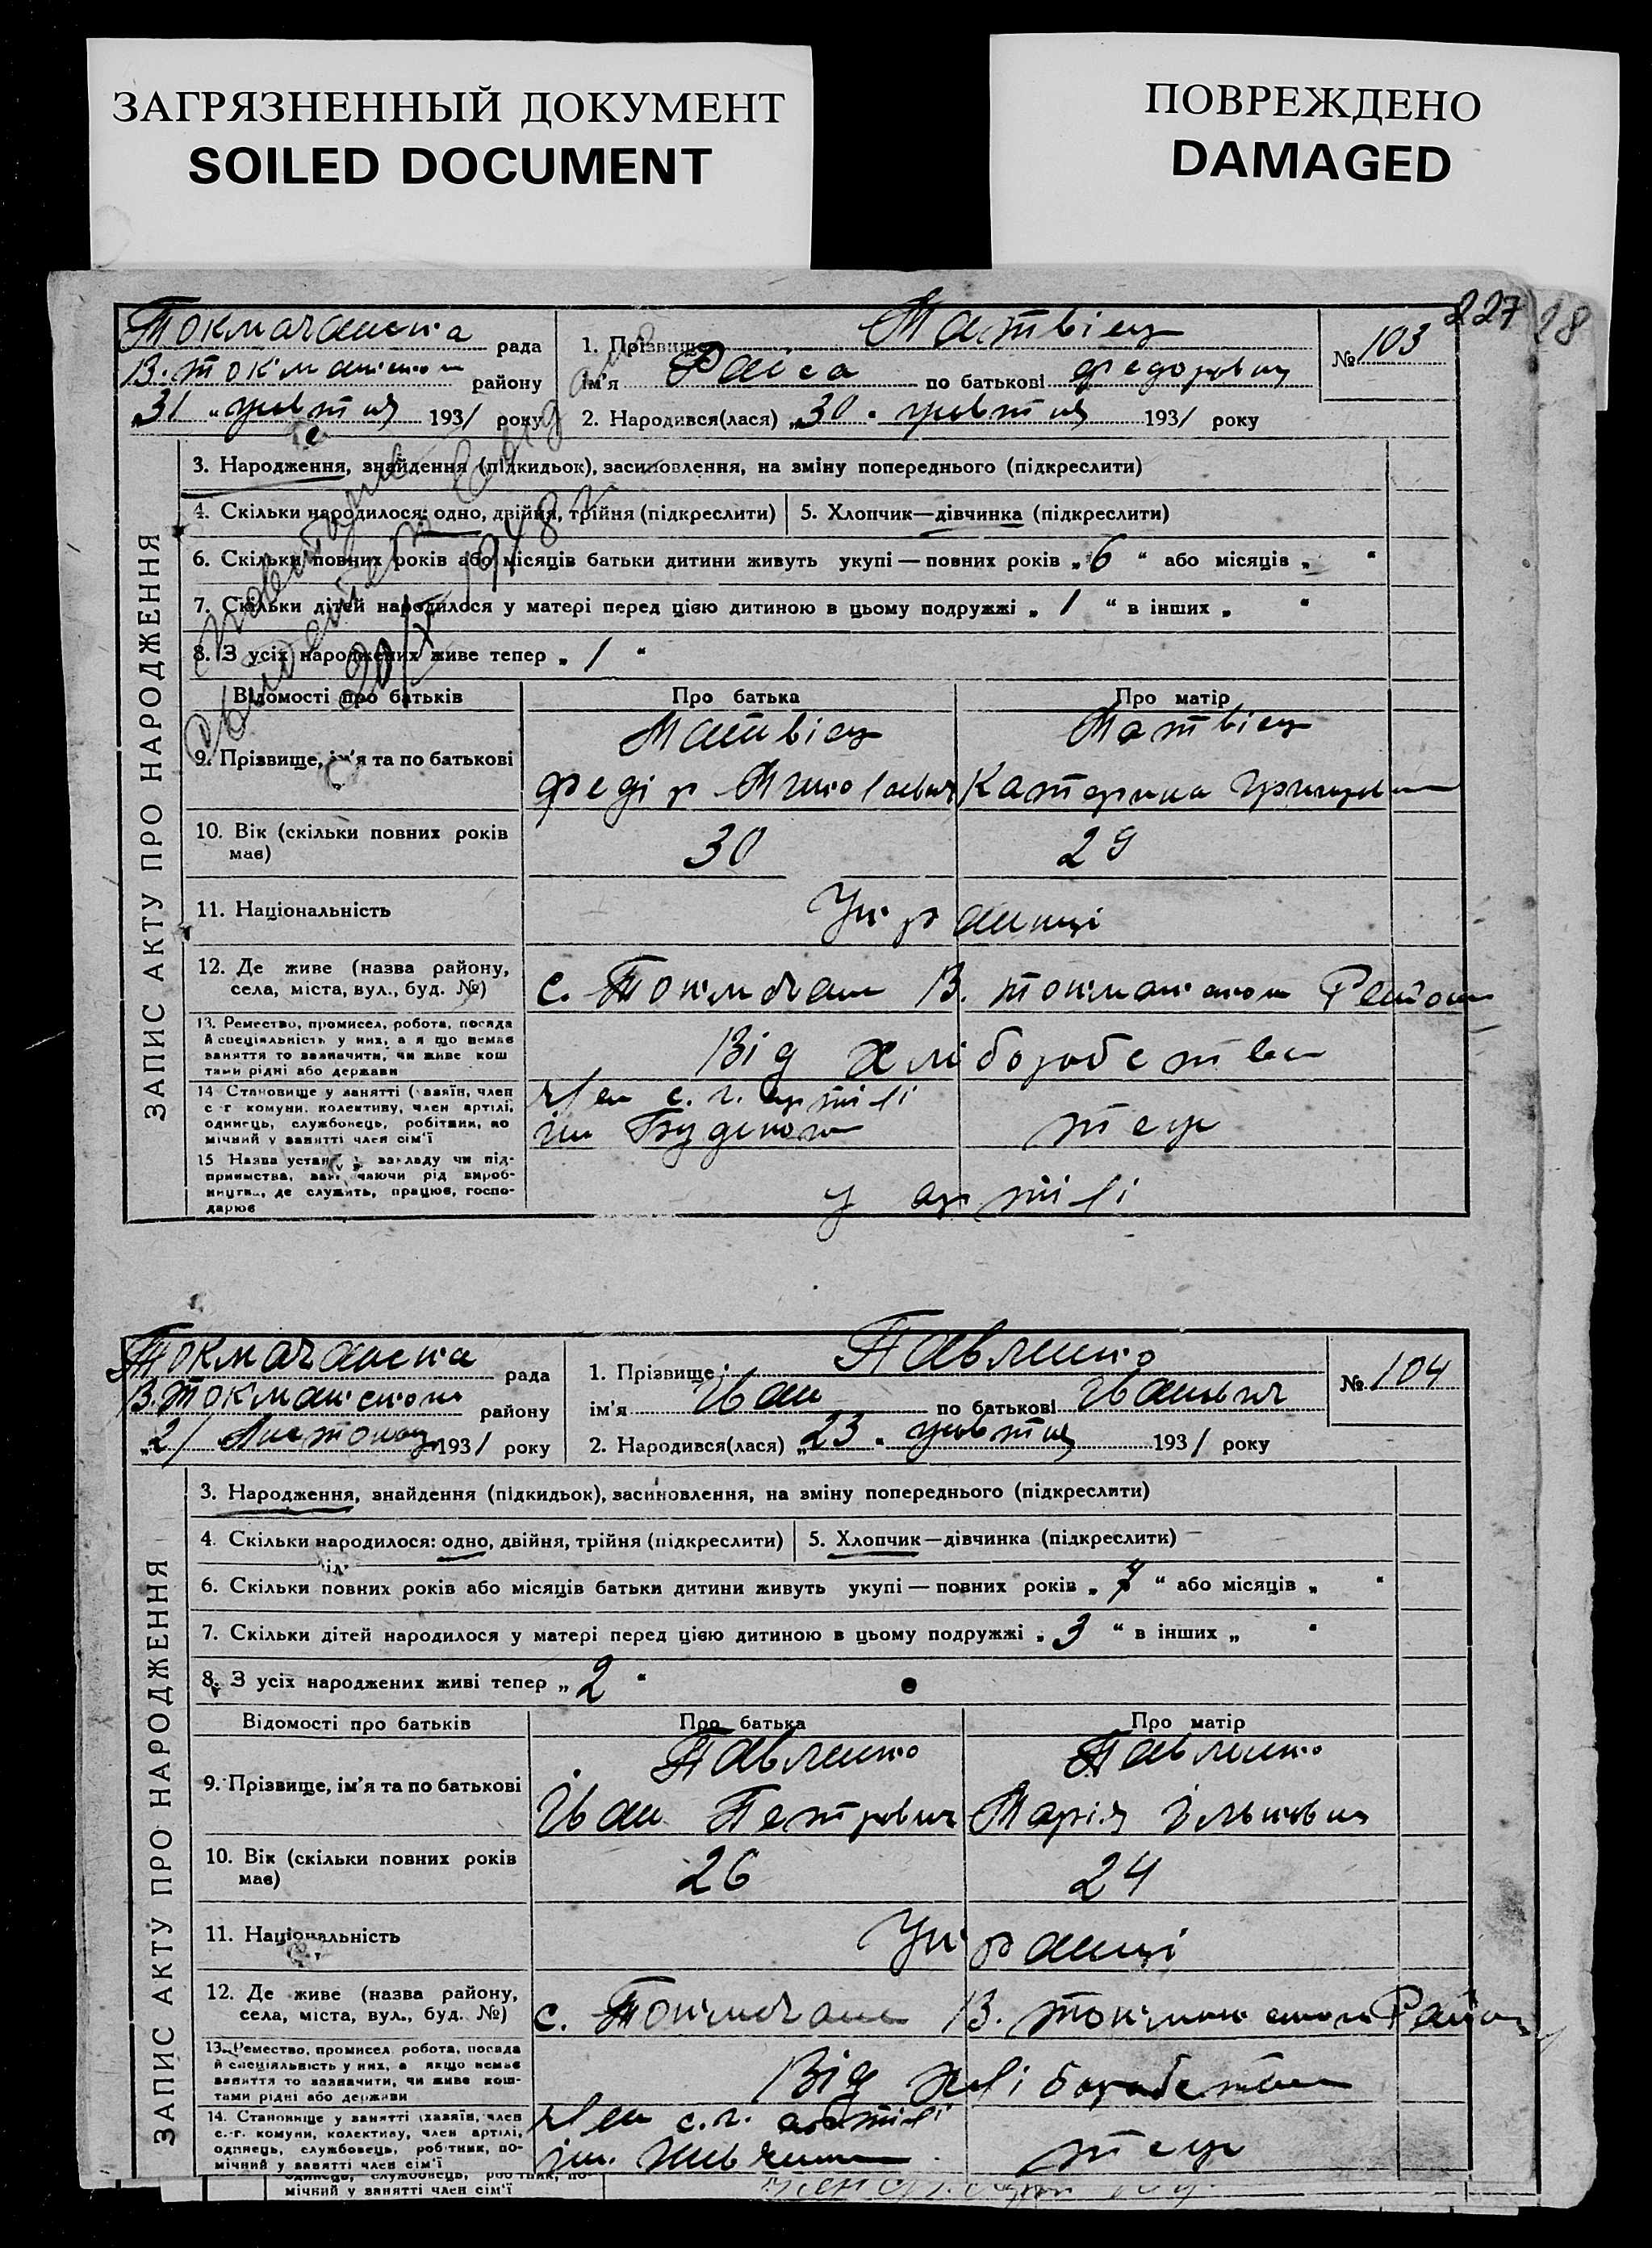 ЗАГРЯЗНЕННЫЙ ДОКУМЕНТ
SOILED DOCUMENT
ПОВРЕЖДЕНО
DAMAGED
227 28
Токмачанська рада
В. Токмацького району
„31 " жовтня 1931 року
1. Прізвище Матвієц
ім'я Раїса по батькові Федоровна
№ 103
2. Народився(лася) „30 " жовтня 1931 року
Повторне
свидетел. выдано
20/X 1948 г
ЗАПИС АКТУ ПРО НАРОДЖЕННЯ
3. Народження, знайдення (підкидьок), засиновлення, на зміну попереднього (підкреслити)
4. Скільки народилося: одно, двійня, трійня (підкреслити) 5. Хлопчик—дівчинка (підкреслити)
6. Скільки повних років або місяців батьки дитини живуть укупі — повних років „ 6 " або місяців „ "
7. Скільки дітей народилося у матері перед цією дитиною в цьому подружжі „ 1 " в інших „ "
8. З усіх народжених живе тепер „ 1 "
Відомості про батьків Про батька Про матір
9. Прізвище, ім'я та по батькові
Матвієц Матвієц
Федір Миколаевич Катерина Григоровна
10. Вік (скільки повних років має) 30 29
11. Національність Українці
12. Де живе (назва району, села, міста, вул., буд. №) с. Токмачан В. токмацького Району
13. Ремество, промисел, робота, посада
й спеціяльність у них, а я що немає
заняття то зазначити, чи живе кош
тами рідні або держави
Від хліборобства
14 Становище у занятті (хазяїн, член
с -г комуни, колективу, член артілі,
одинець, службовець, робітник, по
мічний у занятті член сім'ї
Член с. г. артілі
ім Буденого теж
15 Назва установи, закладу чи під-
приємства, зазначаючи рід вироб-
ництва, де служить, працює, госпо-
дарює
у артілі
Токмачанська рада
В. Токмацького району
„2 " Листопад 1931 року
1. Прізвище Павленко
ім'я Іван по батькові Іванович
№ 104
2. Народився(лася) „23 " жовтня 1931 року
ЗАПИС АКТУ ПРО НАРОДЖЕННЯ
3. Народження, знайдення (підкидьок), засиновлення, на зміну попереднього (підкреслити)
4. Скільки народилося: одно, двійня, трійня (підкреслити) 5. Хлопчик—дівчинка (підкреслити)
6. Скільки повних років або місяців батьки дитини живуть укупі — повних років „ 7 " або місяців „ "
7. Скільки дітей народилося у матері перед цією дитиною в цьому подружжі „ 3 " в інших „ "
8. З усіх народжених живі тепер „ 2 "
Відомості про батьків Про батька Про матір
9. Прізвище, ім'я та по батькові
Павленко Павленко
Іван Петрович Марія
10. Вік (скільки повних років має) 26 24
11. Національність Українці
12. Де живе (назва району, села, міста, вул., буд. №) с. Токмачан В. токмацького Району
13. Ремество, промисел, робота, посада
й спеціяльність у них, а якщо немає
заняття то зазначити, чи живе кош-
тами рідні або держави
Від хліборобства
14. Становище у занятті (хазяїн, член
с.-г. комуни, колективу, член артілі,
одинець, службовець, робітник, по-
мічний у занятті член сім'ї
Член с. г. артілі
ім. Шевченка теж
одинець, службовець, робітник, по-
мічний у занятті член сім'ї